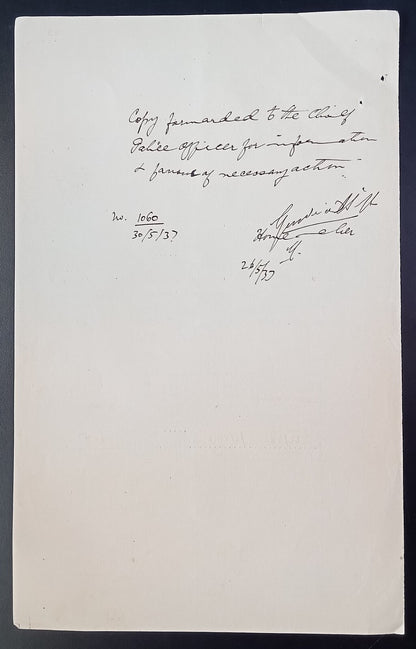 Copy forwarded to the Chief
Police Officer for information
& favour of necessary action.
No. 1060
30/5/37
Home
26/5/37